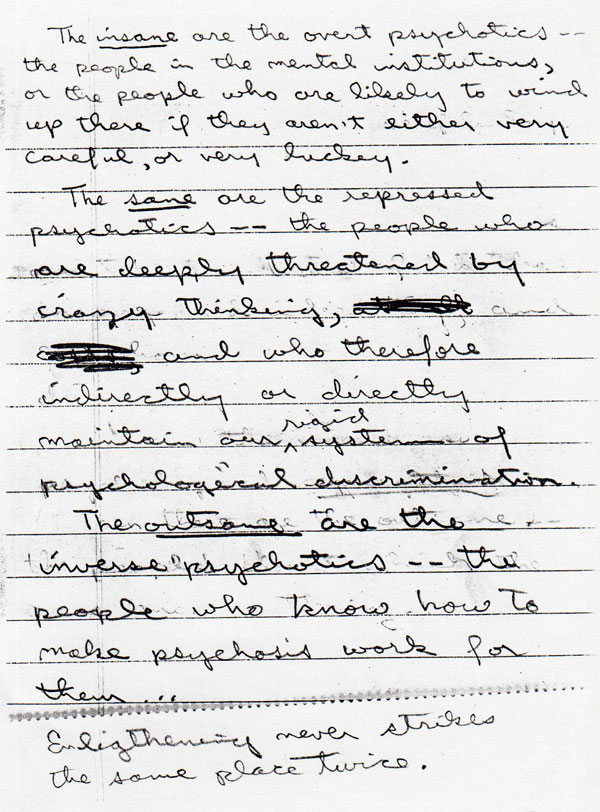 The insane are the overt psychotics --
the people in the mental institutions,
or the people who are likely to wind
up there if they aren't either very
careful, or very luckey.
The sane are the repressed
psychotics -- the people who
are deeply threatened by
crazy thinking,
and who therefore
indirectly or directly
maintain our rigid system of
psychological discrimination.
The outsane are the
"inverse" psychotics -- the
people who know how to
make psychosis work for
them...
Enligthening never strikes
the same place twice.